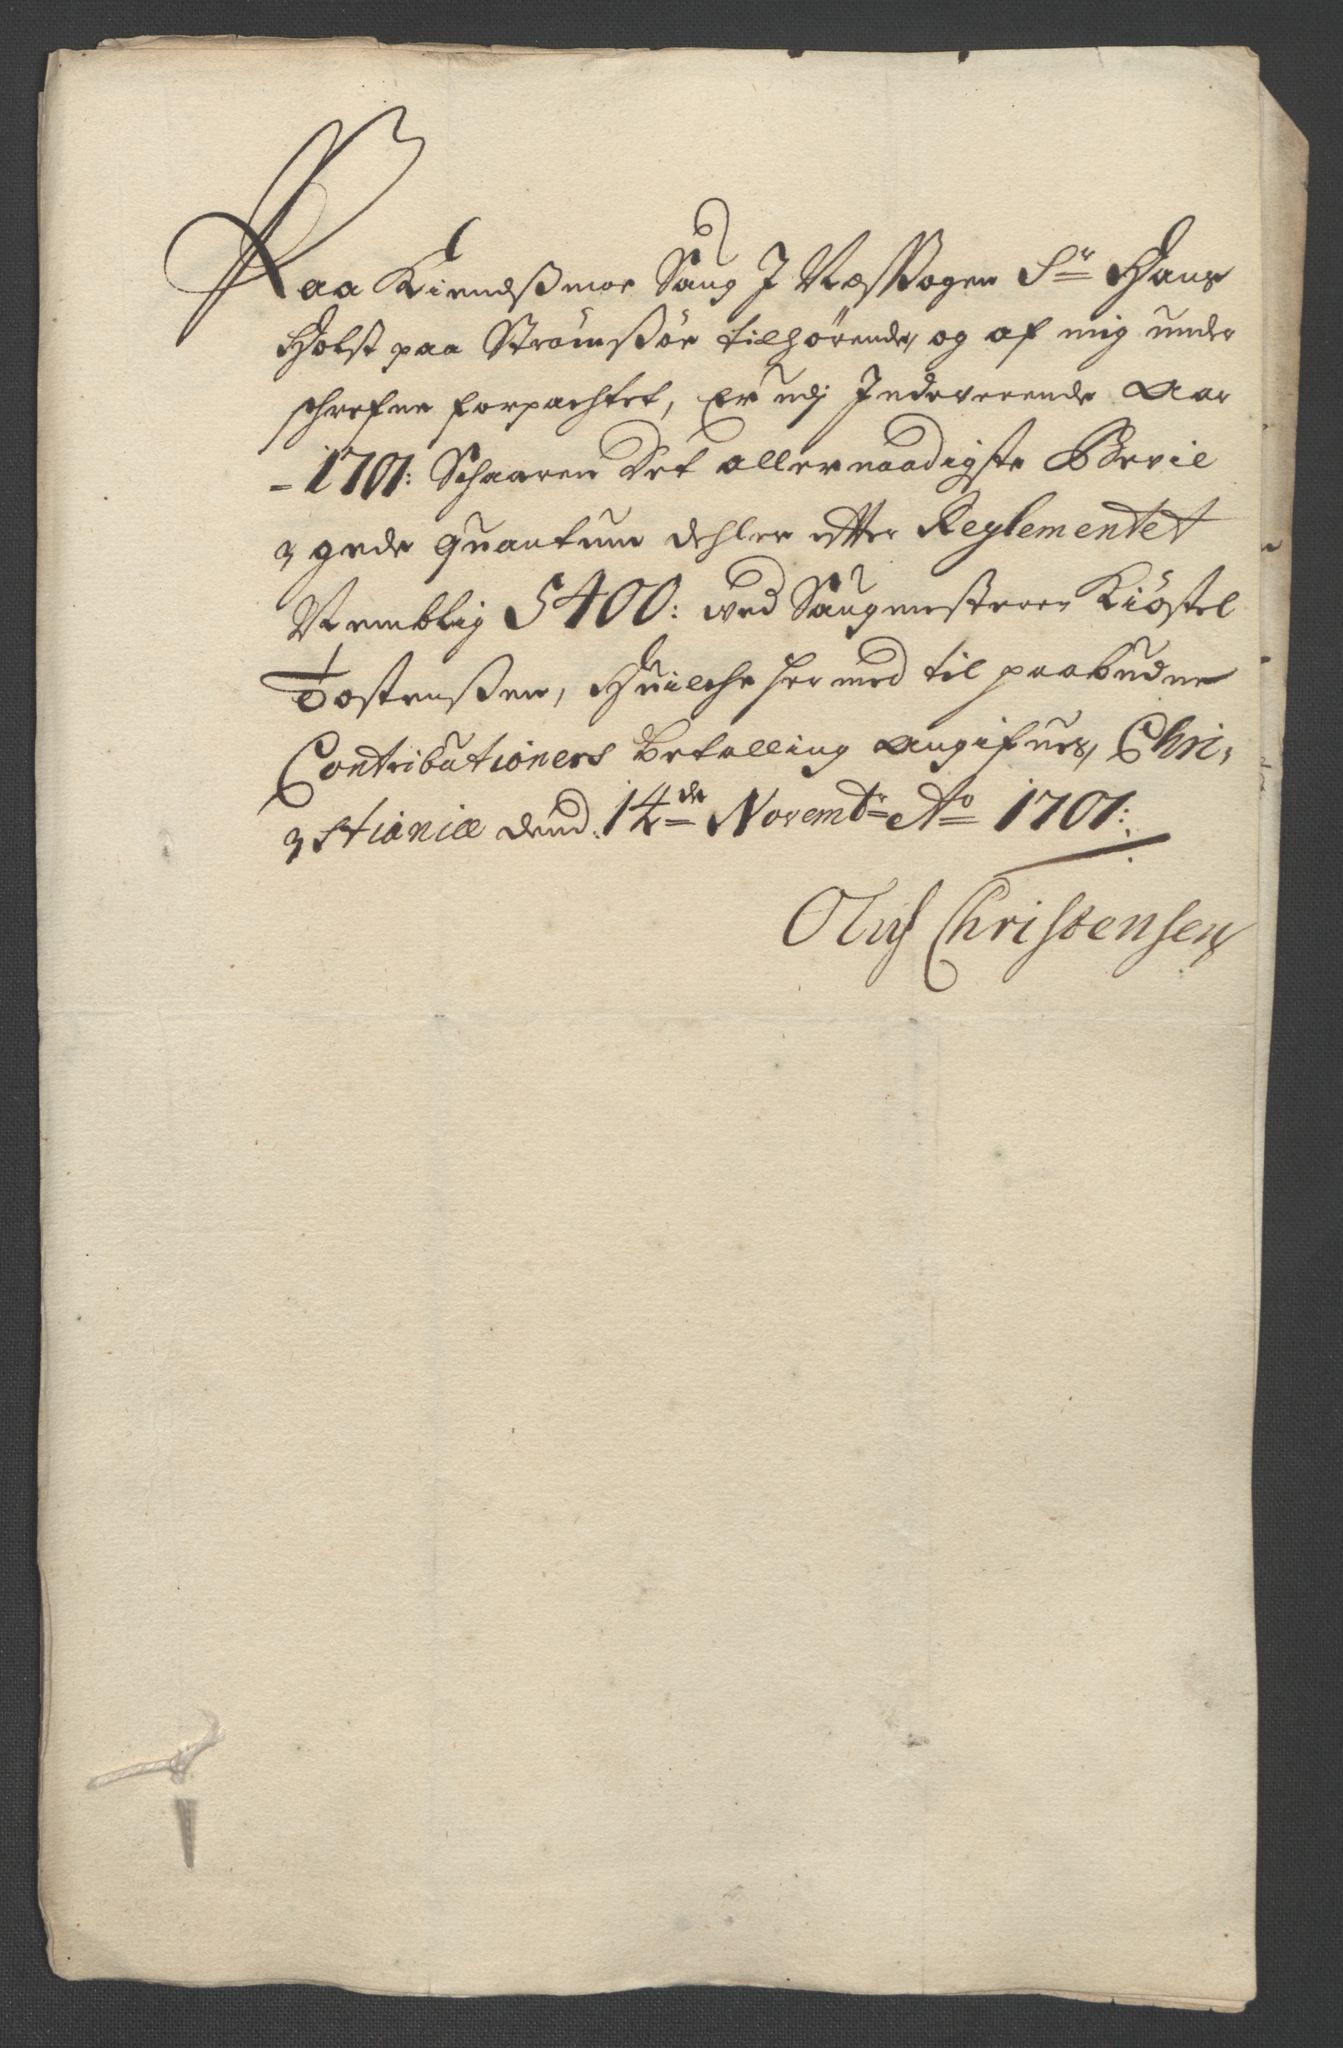 Paa Kiendsmoe Saug J Næs Sogen Sr Hans
Holst paa Strömsöe tilhörende, og af mig under
schrefne forpachtet, Er udj Indeverende Aar
- 1701: Schaaren Det allernaadigste Bevil
gede Quantum dehler effter Reglementet
Nemblig 5400: ved Saugmesteren Kiöstel
Tostenssen, Huilche her med til paabudne
Contributioners betalling angifues, Chri,
stianiæ dend. 14de Novembr Ao 1701:
Oluf Christensen